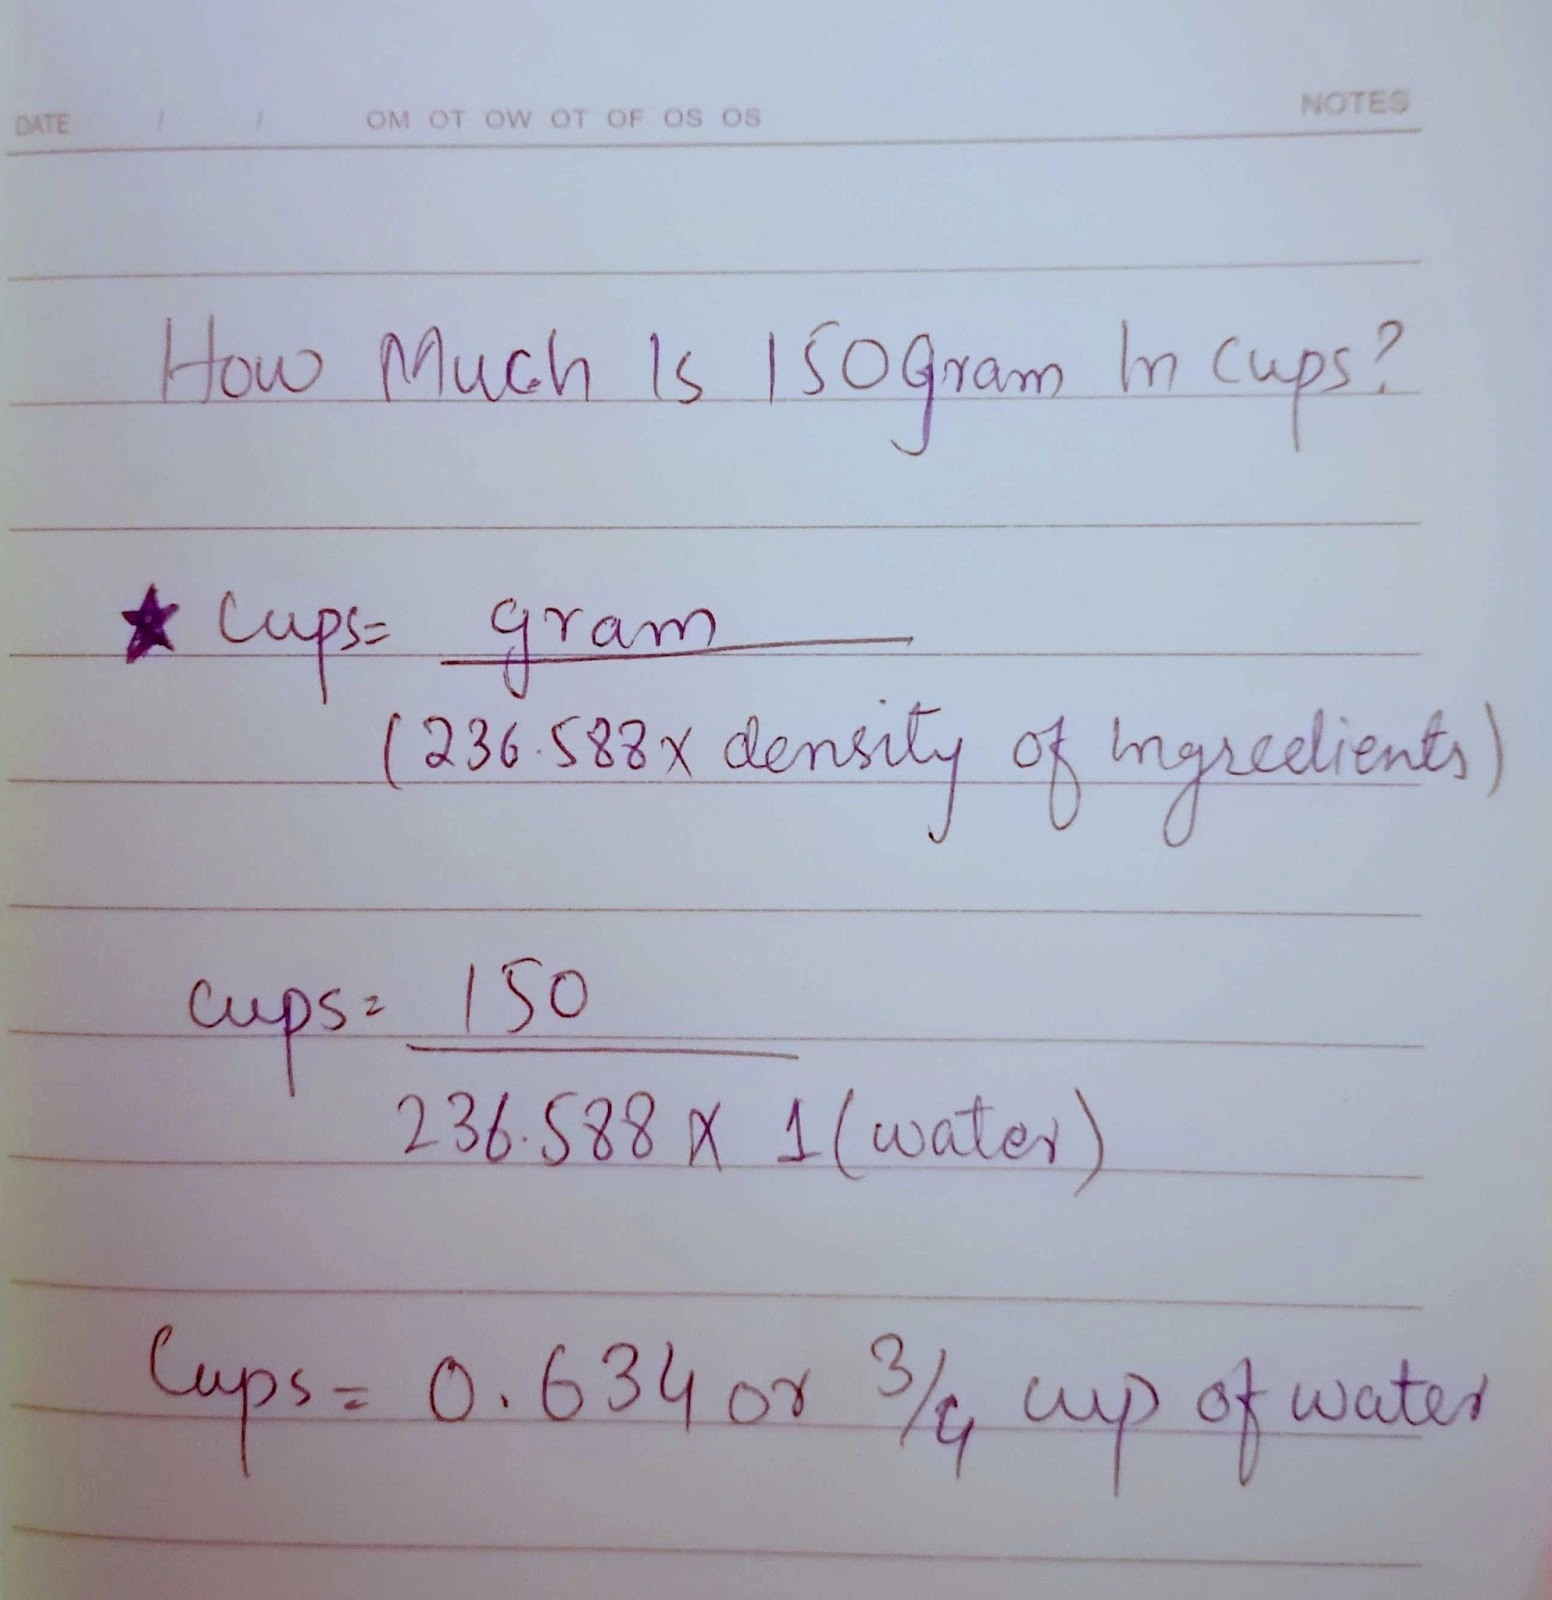 DATE / / OM OT OW OT OF OS OS NOTES
How Much Is 150Gram In Cups?
★ Cups= gram
(236.588x density of Ingredients)
cups= 150
236.588 x 1 (water)
Cups = 0.634 or 3/4 cup of water